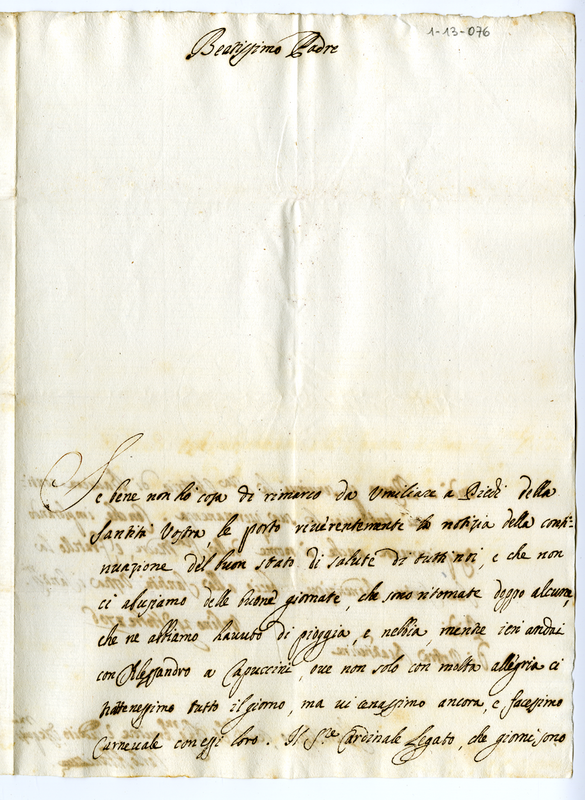 1-13-076
Beatissimo Padre
Se bene non hò cosa di rimarco da umiliare a Piedi della
Santità Vostra le porto riverentemente la notizia della conti-
nuazione del buon stato di salute di tutti noi, e che non
ci abusiamo delle buone giornate, che sono ritornate doppo alcune,
che ne abbiamo hauuto di pioggia, e nebbia mentre ieri andai
con Alessandro a Capuccini, oue non solo con molta allegria ci
trattenessimo tutto il giorno, ma ui cenassimo ancora, e facessimo
Carneuale con essi loro. Il S.re Cardinale Legato, che giorni sono